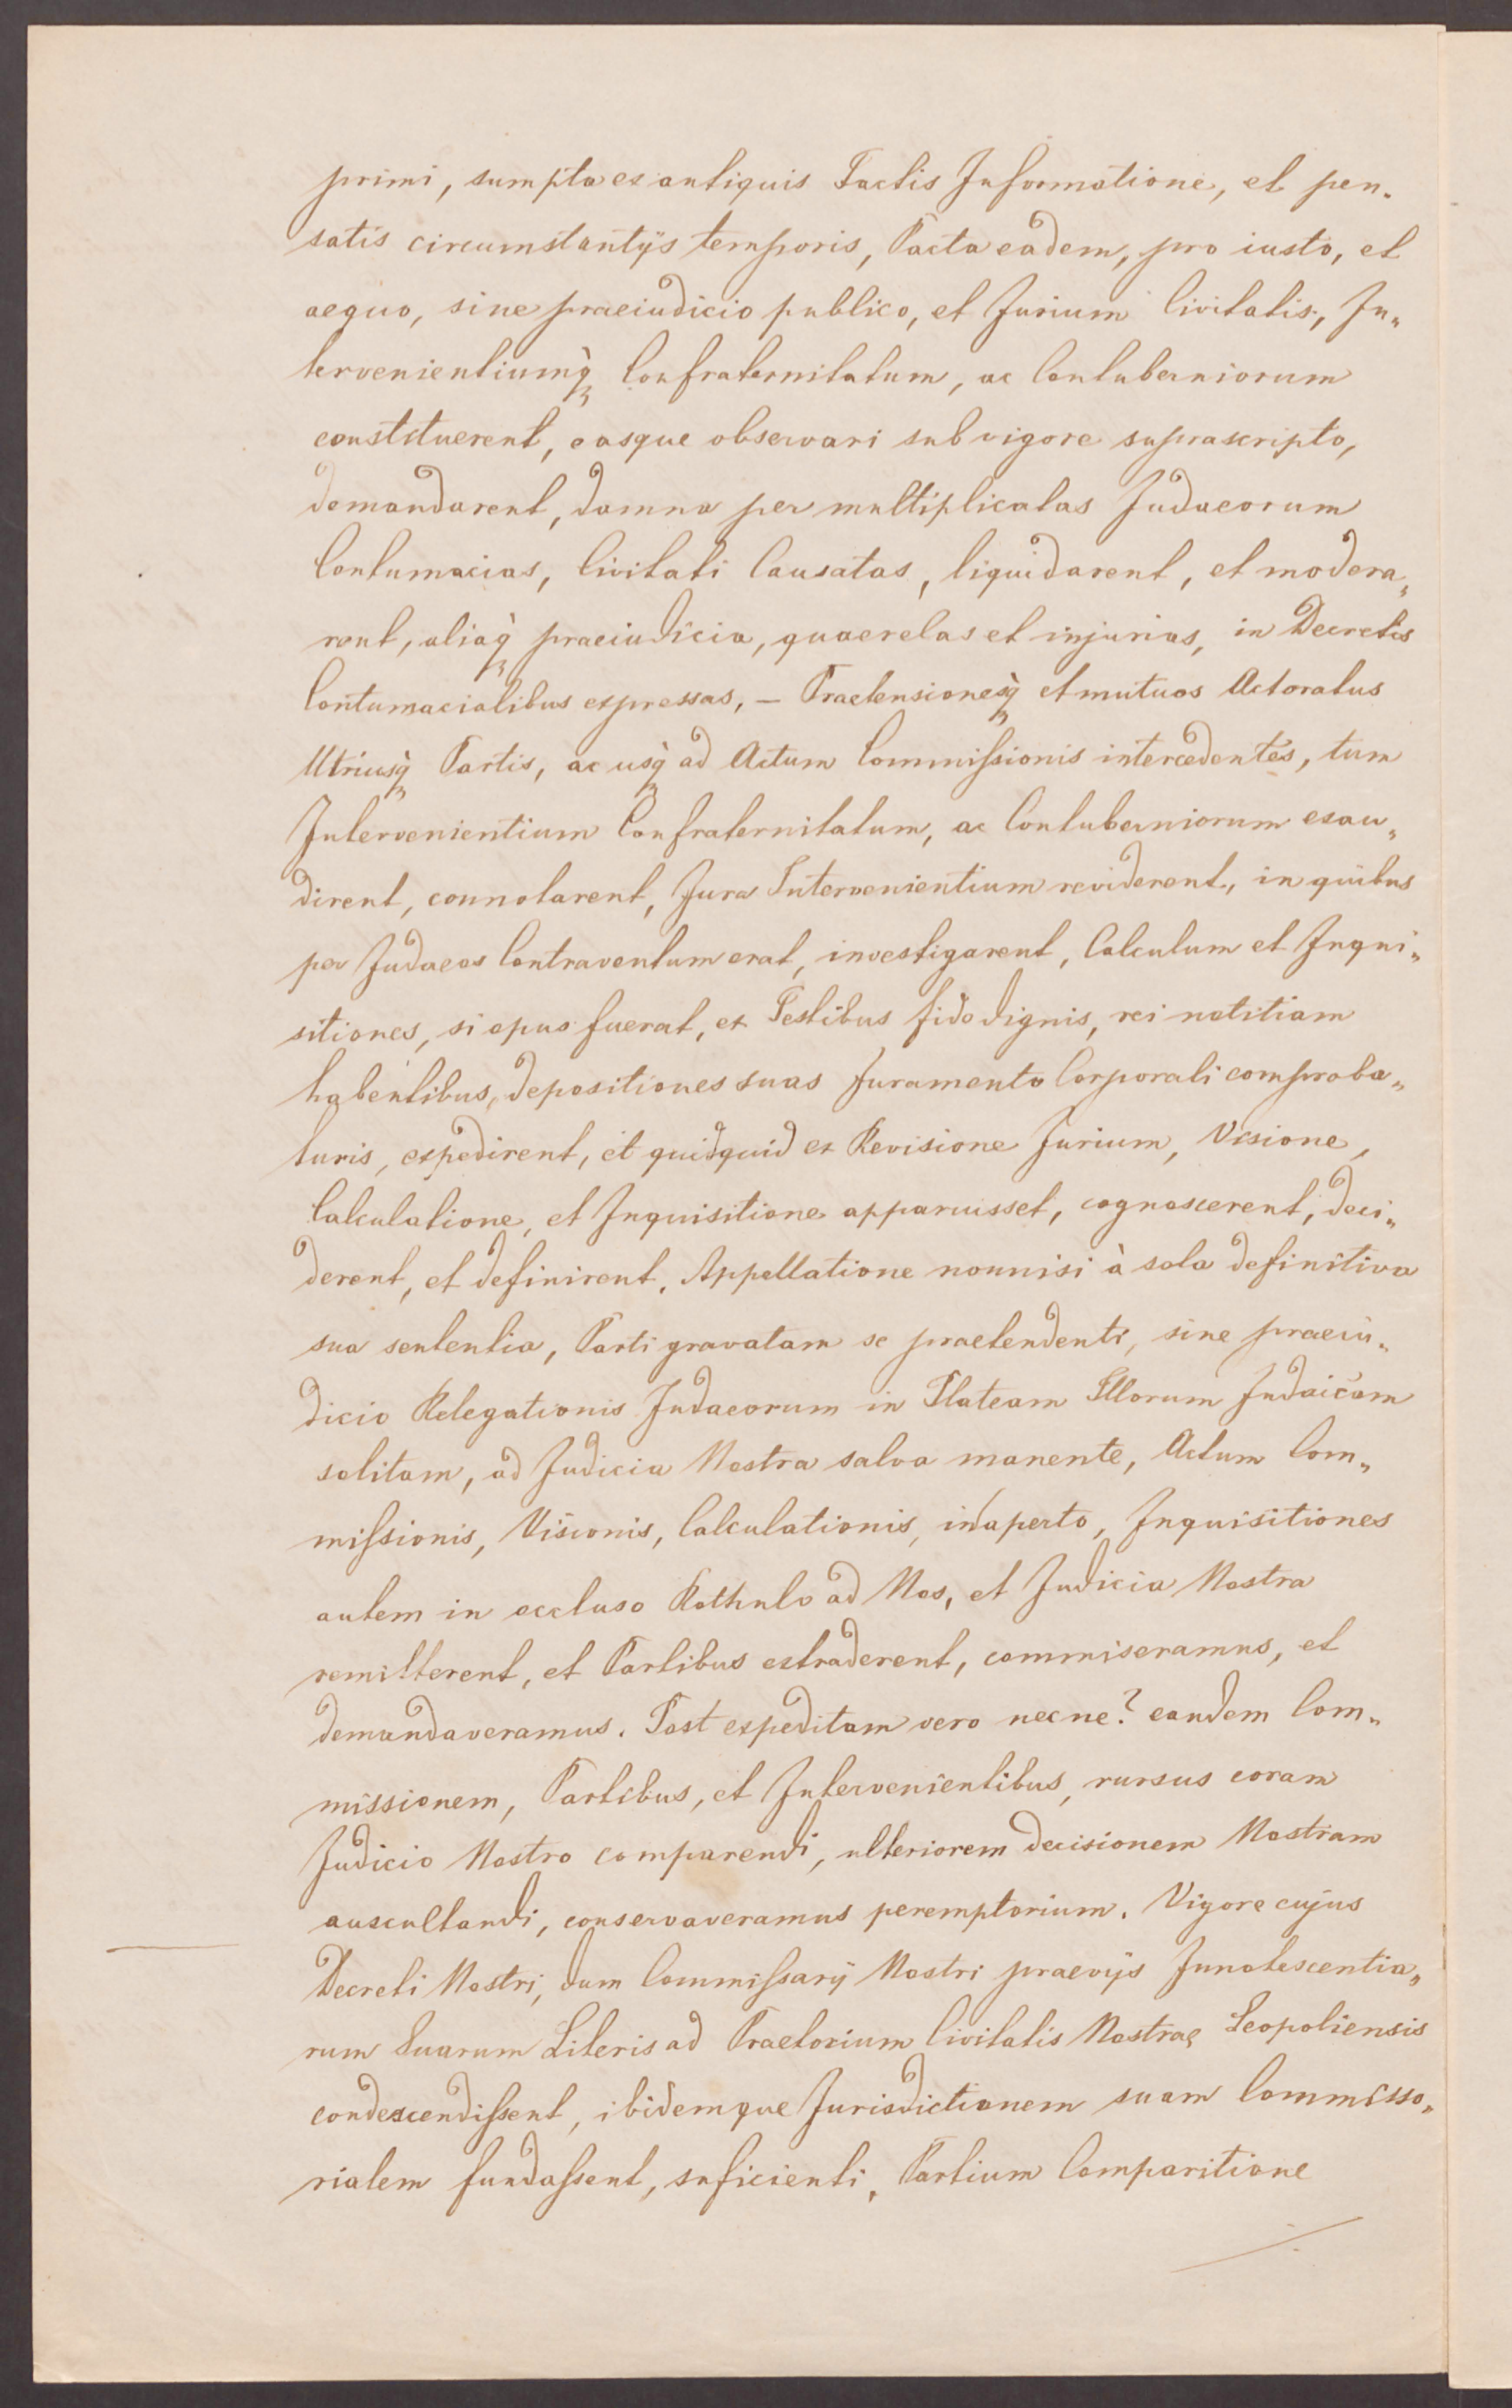 primi, sumpta ex antiquis Pactis Informatione, et pen„
satis circumstantijs temporis, Pacta eadem, pro iusto, et
aequo, sine praeiudicio publico, et Jurium Civitatis, In„
tervenientiumq̀ Confraternitatum, ac Contuberniorum
constituerent, easque observari sub vigore suprascripto,
demandarent, damna per multiplicatas Judaeorum
Contumacias, Civitati Causatas, liquidarent, et modera„
rent, aliaq̀ praeiudicia, quaerelas et injurias, in Decretis
Contumacialibus expressas, – Praetensionesq̀ et mutuos Actoratus
Utriusq̀ Partis, ac usq̀ ad Actum Commissionis intercedentes, tum
Intervenientium Confraternitatum, ac Contuberniorum exau„
dirent, connotarent, Jura Intervenientium reviderent, in quibus
per Judaeos Contraventum erat, investigarent, Calculum et Inqui„
sitiones, si opus fuerat, ex Testibus fide dignis, rei notitiam
habentibus, depositiones suas Juramento Corporali comproba„
turis, expedirent, et quidquid ex Revisione Jurium, Visione,
Calculatione, et Inquisitione apparuisset, cognoscerent, deci„
derent, et definirent. Appellatione nonnisi à sola definitiva
sua sententia, Parti gravatam se praetendenti, sine praeiu„
dicio Relegationis Judaeorum in Plateam Illorum Judaicam
solitam, ad Judicia Nostra salva manente, Actum Com„
missionis, Visionis, Calculationis, in aperto, Inquisitiones
autem in occluso Rothulo ad Nos, et Judicia Nostra
remitterent, et Partibus extraderent, commiseramus, et
demandaveramus. Post expeditam vero necne? eandem Com„
missionem, Partibus, et Intervenientibus, rursus coram
Judicio Nostro comparendi, ulteriorem decisionem Nostram
auscultandi, conservaveramus peremptorium. Vigore cujus
Decreti Nostri, dum Commissarij Nostri praevijs Innotescentia„
rum Suarum Literis ad Praetorium Civitatis Nostrae Leopoliensis
condescendissent, ibidemque Jurisdictionem suam Commisso„
rialem fundassent, suficienti, Partium Comparitione